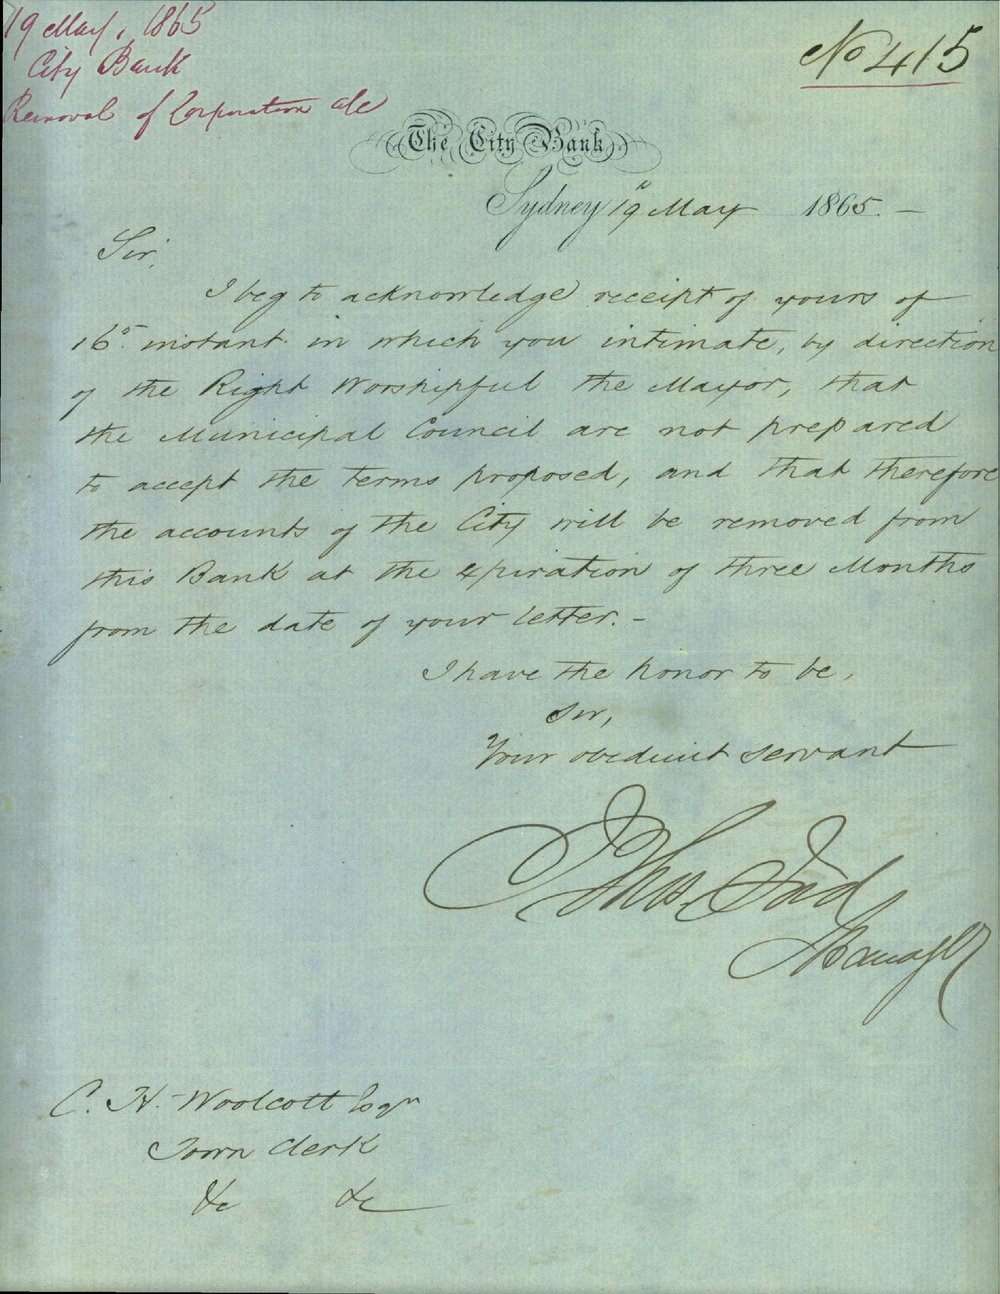 19 May, 1865
City Bank
Removal of Corporation a/c
No 415
The City Bank
Sydney 19 May 1865. -
Sir,
I beg to acknowledge receipt of yours of
16th instant in which you intimate, by direction
of the Right Worshipful the Mayor, that
the Municipal Council are not prepared
to accept the terms proposed, and that therefore
the accounts of the City will be removed from
this Bank at the expiration of three Months
from the date of your letter. -
I have the honor to be,
Sir,
Your obedient servant
Manager
C. H. Woolcott Esqr
Town Clerk
&c &c